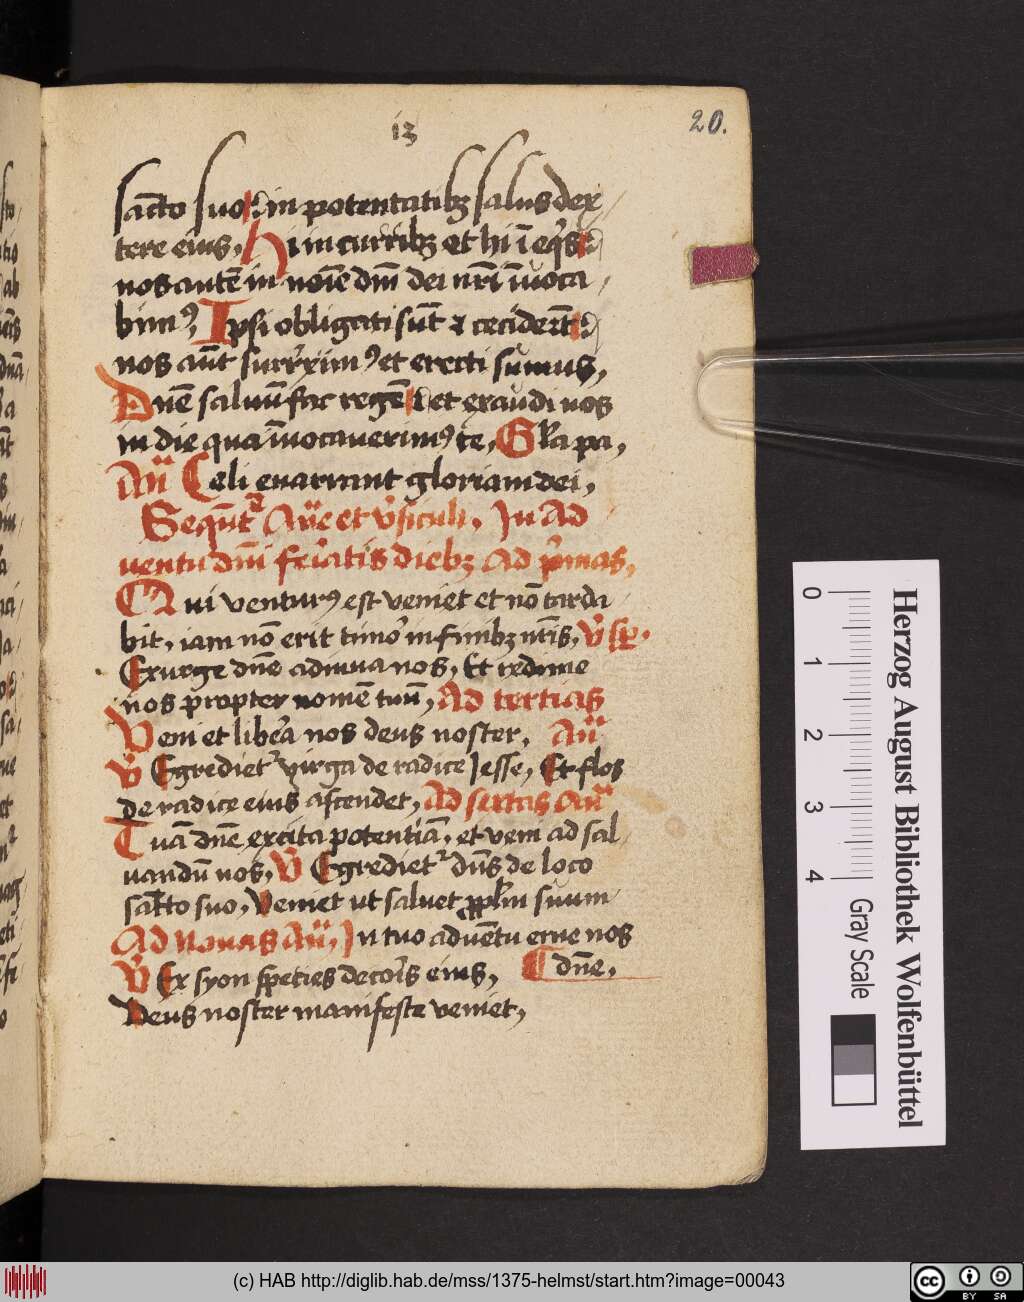 13
20.
sāc̄to suo: in potentatibꝫ salus dex
tere eius, Hi in curribꝫ et hi ī eq̄s:
nos autē in noīe dn̄i dei nr̄i īuoca
bimꝰ, Ipsi obligati sūt ⁊ ceciderūt:
nos aūt surrexim̄ꝰ et erecti sumus,
Dn̄e saluū fac regē: et exaudi nos
in die qua īuocauerimꝰ te, Gl̄a pa,
An̄ Celi enarrant gloriam dei,
Sequūt᷑ An̄e et v̄siculi, In Ad
uentu dn̄i feriatis diebꝫ Ad p̄mas,
Qui venturꝰ est veniet et nō tarda
bit, iam nō erit timor in finibꝫ nr̄is, V̄s
Exurge dn̄e adiuua nos, Et redime
nos propter nomē tuū, Ad tertias
Veni et libera nos deus noster, An̄
V̄ Egrediet᷑ virga de radice Jesse, Et flos
de radice eius ascendet, Ad sextas An̄
Tuā dn̄e excita potentiā, et veni ad sal
uandū nos, V̄ Egrediet᷑ dn̄s de loco
sāc̄to suo, Veniet ut saluet pp̄lm suum
Ad Nonas An̄, In tuo aduētu erue nos
V̄ Ex syon species decoris eius, dn̄e,
Deus noster manifeste veniet,
0
1
2
3
4
Gray Scale
Herzog August Bibliothek Wolfenbüttel
(c) HAB http://diglib.hab.de/mss/1375-helmst/start.htm?image=00043
cc BY SA